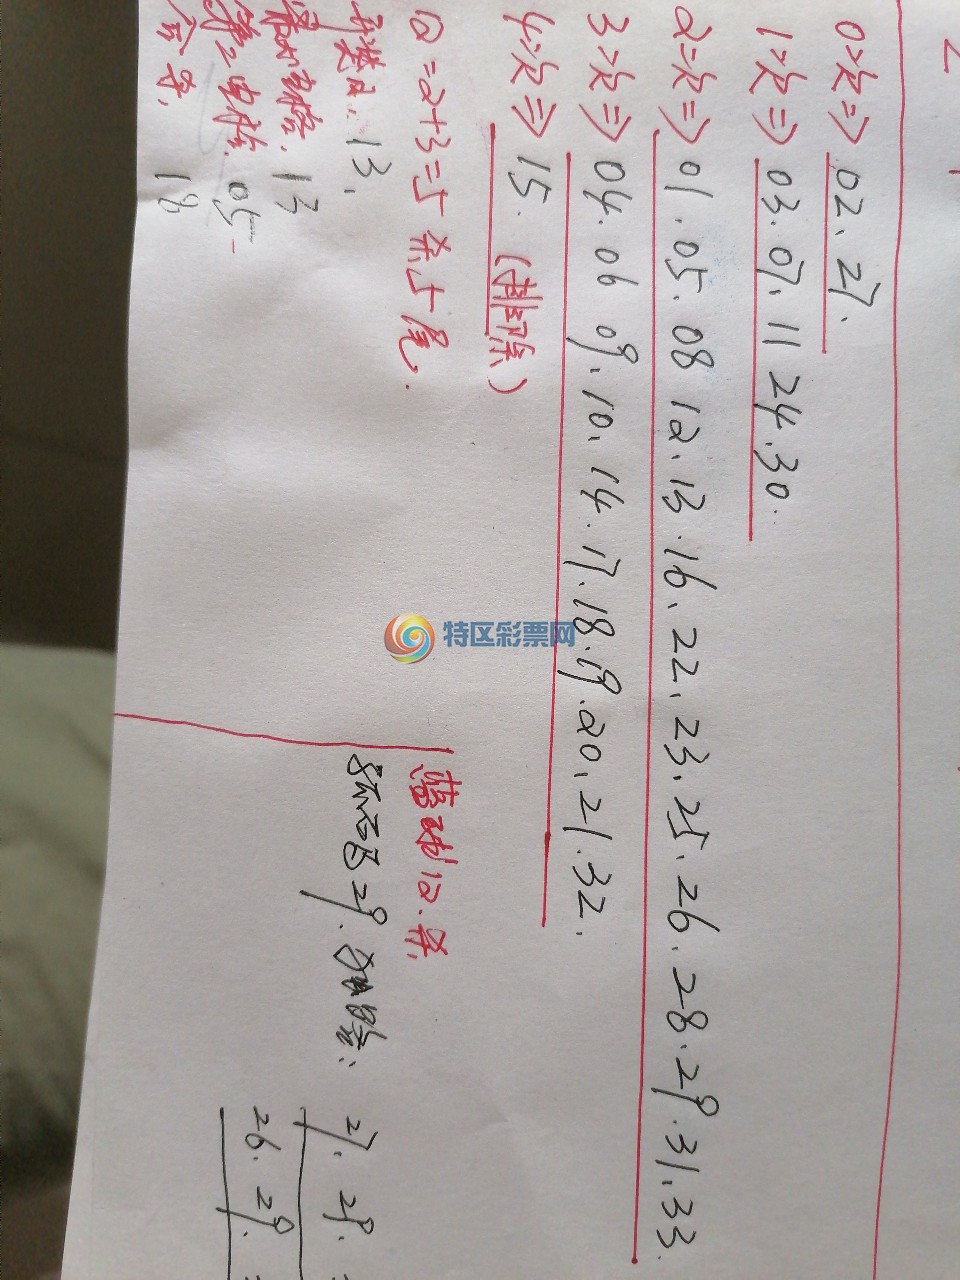 0次⇒ 02.27.
1次⇒ 03.07.11 24.30.
2次⇒ 01.05.08 12.13.16.22.23.25.26.28.29.31.33.
3次⇒ 04.06 09.10.14.17.18.19.20.21.32.
4次⇒ 15. (排除)
② =2+3=5 杀5尾.
开奖日: 13.
13
第2 05
合 18
特区彩票网
蓝球12.杀
29.
27. 29.
26. 29.